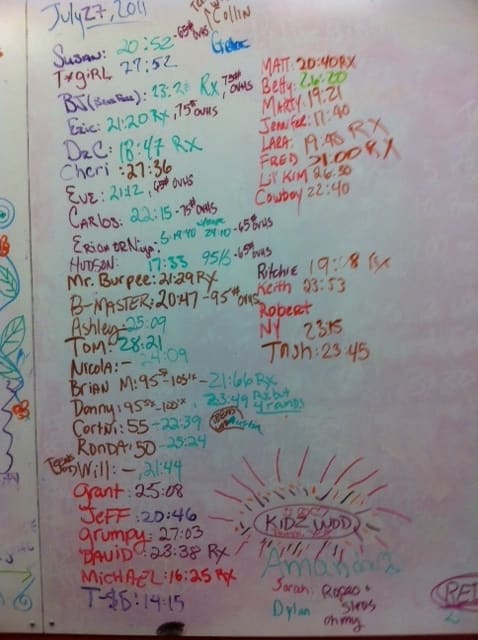 July 27, 2011
Collin
SUSAN: 20:52 -65# OVHS
TxgiRL 27:52
BJ Rx, 75# OVHS
Eric: 21:20 Rx, 75# OVHS
DRC: 18:47 RX
Cheri: 27:36
EVE: 21:12, 65# OVHS
CARLOS: 22:15 -75# OVHS
-65# OVHS
HUTSON: 17:33 95/5 -65# OVHS
Mr. Burpee: 21:29 Rx
B-MASTER: 20:47 -95# OVHS
Ashley- 25:09
TOM: 28:21
NICOLA: - 24:09
BRIAN M: 95# -105 1x - 21:66 Rx
Donny: 95 5x -100 1x - 23:49 Rx but 4 rounds
Cortni: 55 -22:39 Austin
RONDA: 50 -25:24
Will: -, 21:44
grant: 25:08
JEFF: 20:46
grumpy: 27:03
DAVID: 28:38 Rx
MICHAEL: 16:25 Rx
14:15
MATT: 20:40 RX
Betty: 26:20
Marty: 19:21
Jennifer: 17:40
LARA: 19:48 RX
FRED 21:00 RX
Lil' KIM 26:50
Cowboy 22:40
Ritchie 19:08 Rx
Keith 23:53
Robert
NY 23:15
Trish: 23:45
KIDZ WOD
Amanda
Sarah: Ropes +
Dylan sleds
oh my